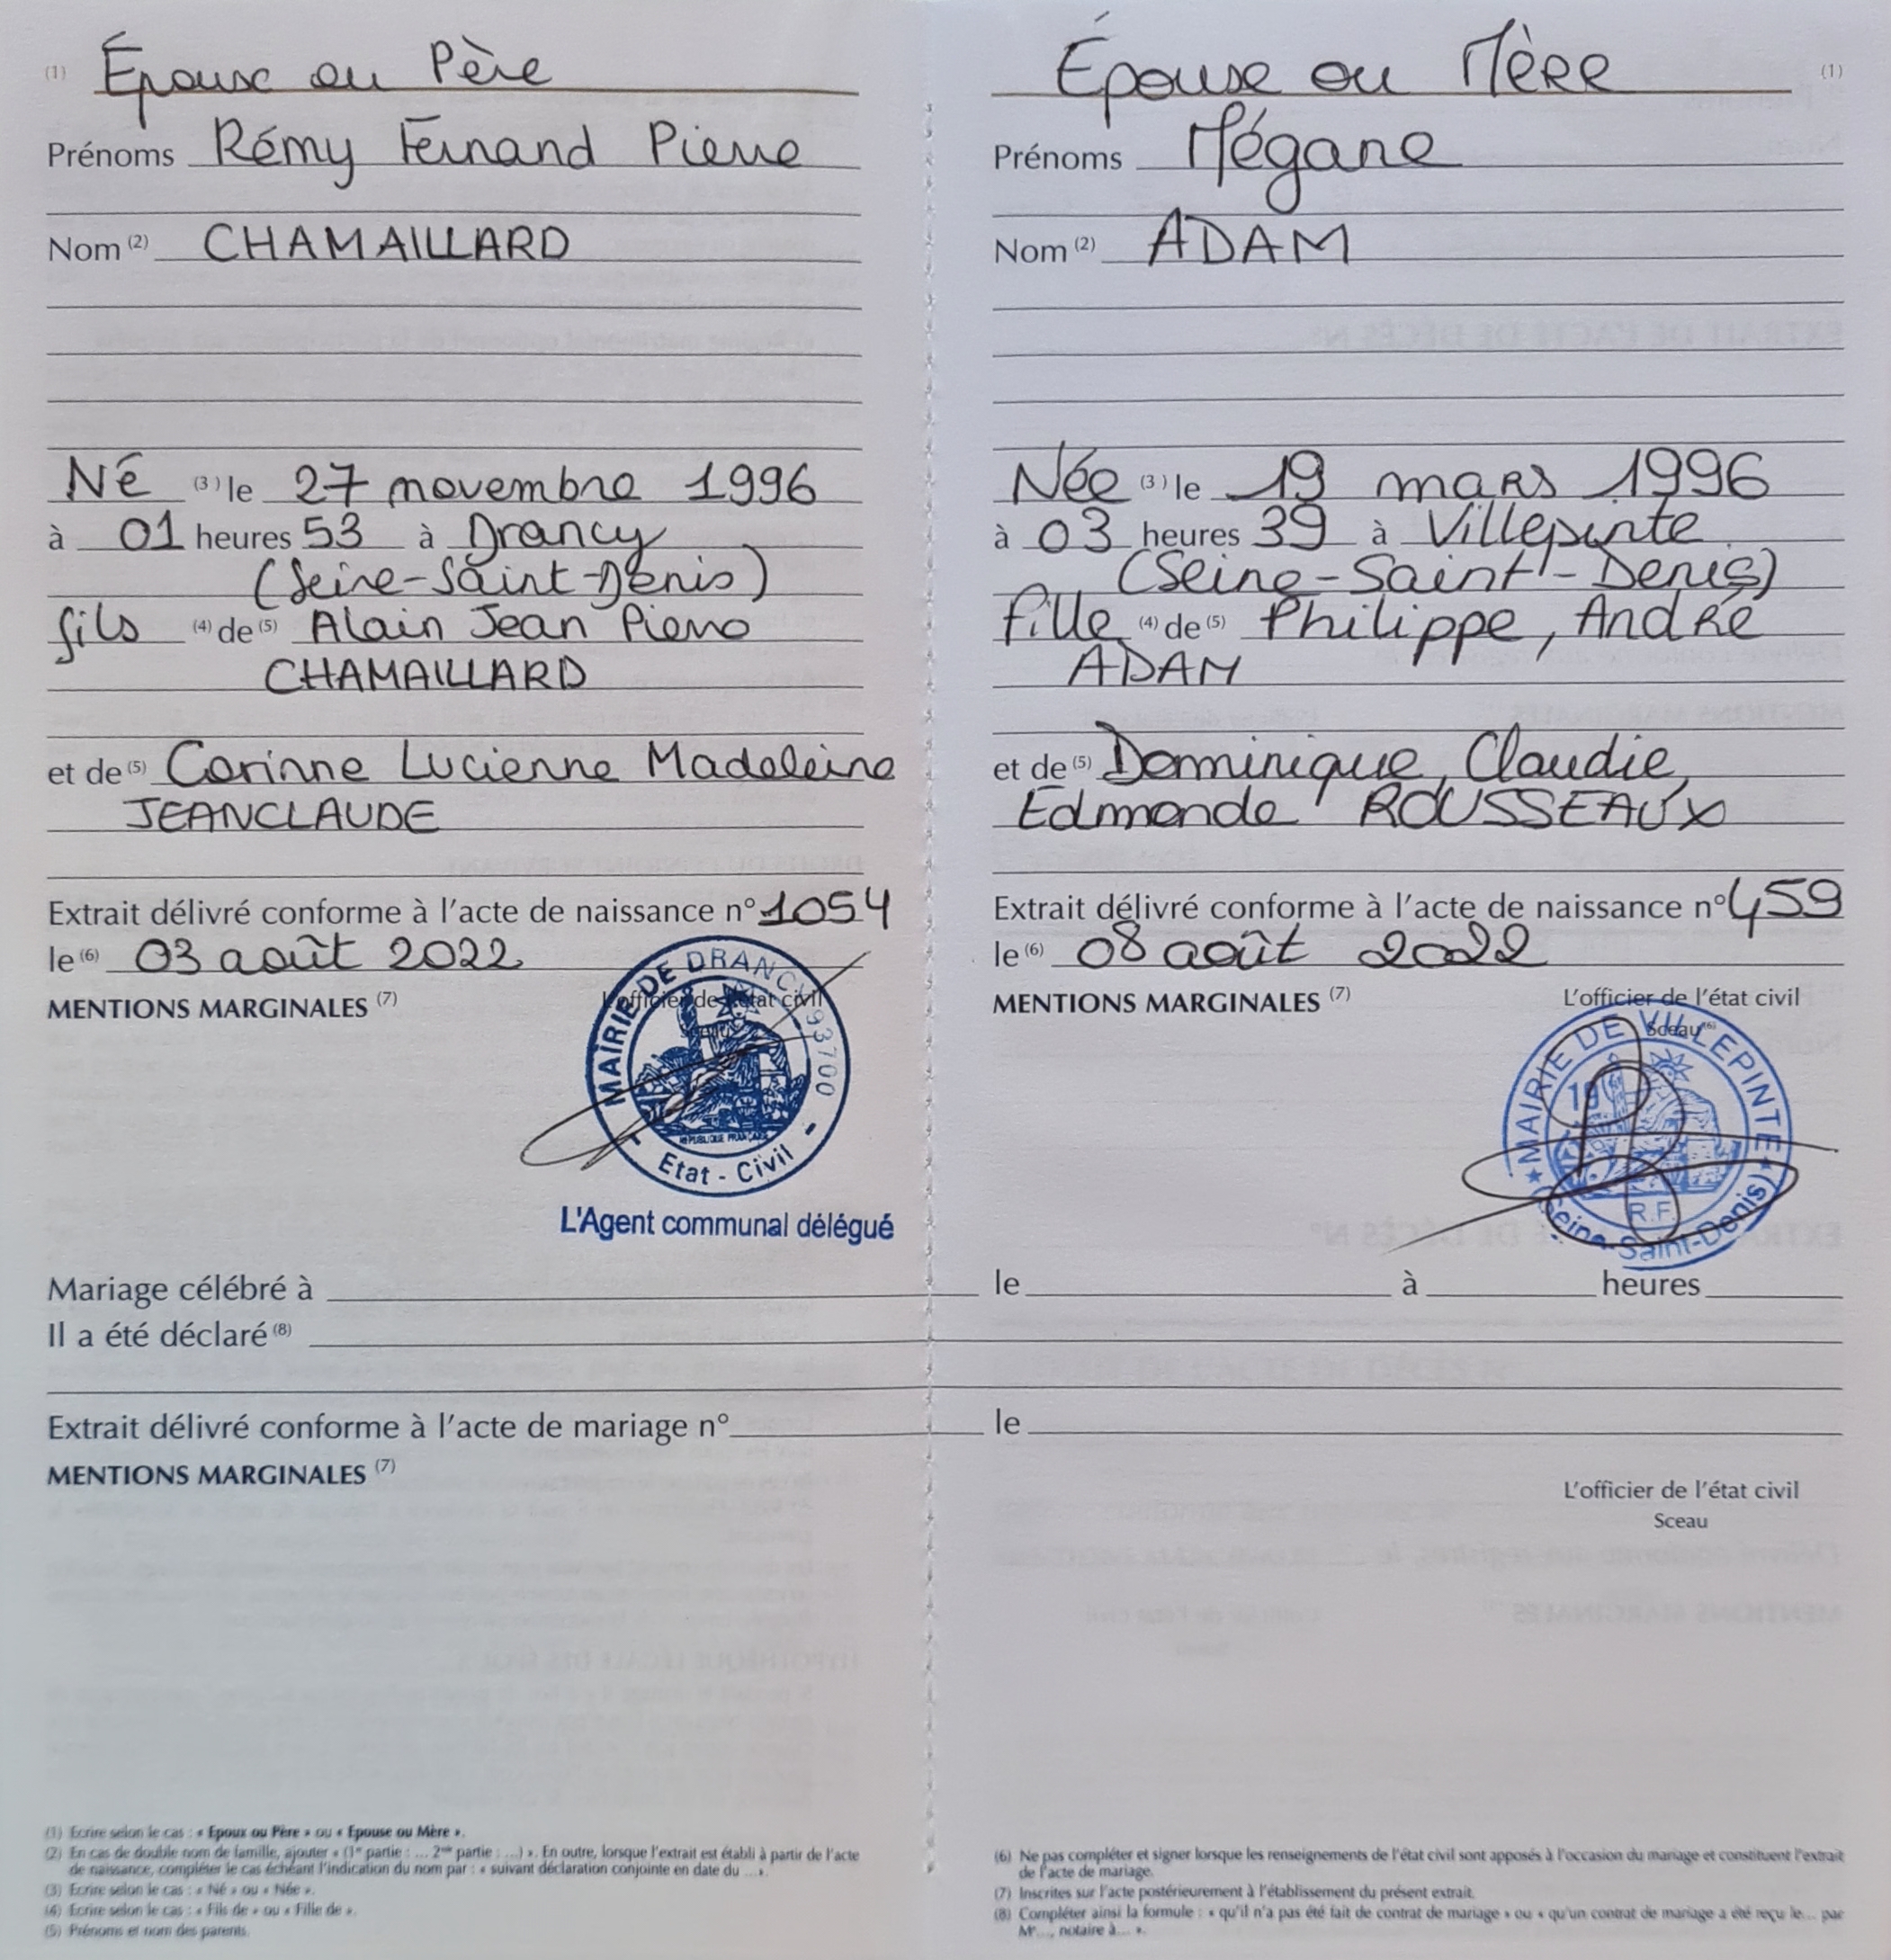 (1) Époux ou Père
Prénoms Rémy Fernand Pierre
Nom (2) CHAMAILLARD
Né (3) le 27 novembre 1996
à 01 heures 53 à Drancy
(Seine-Saint-Denis)
fils (4) de (5) Alain Jean Pierre
CHAMAILLARD
et de (5) Corinne Lucienne Madeleine
JEANCLAUDE
Extrait délivré conforme à l'acte de naissance n° 1054
le (6) 03 août 2022
MENTIONS MARGINALES (7)
L'officier de l'état civil
Sceau
MAIRIE DE DRANCY 93700
REPUBLIQUE FRANÇAISE
Etat - Civil
L'Agent communal délégué
Épouse ou Mère (1)
Prénoms Mégane
Nom (2) ADAM
Née (3) le 19 mars 1996
à 03 heures 39 à Villepinte
(Seine-Saint-Denis)
fille (4) de (5) Philippe, André
ADAM
et de (5) Dominique, Claudie,
Edmonde ROUSSEAUX
Extrait délivré conforme à l'acte de naissance n° 459
le (6) 08 août 2022
MENTIONS MARGINALES (7)
L'officier de l'état civil
Sceau (6)
MAIRIE DE VILLEPINTE
R.F.
(Seine-Saint-Denis)
Mariage célébré à le à heures
Il a été déclaré (8)
Extrait délivré conforme à l'acte de mariage n° le
MENTIONS MARGINALES (7)
L'officier de l'état civil
Sceau
(1) Ecrire selon le cas : « Epoux ou Père » ou « Epouse ou Mère ».
(2) En cas de double nom de famille, ajouter « (1re partie : ... 2nde partie : ...) ». En outre, lorsque l'extrait est établi à partir de l'acte
de naissance, compléter le cas échéant l'indication du nom par : « suivant déclaration conjointe en date du ... ».
(3) Ecrire selon le cas : « Né » ou « Née ».
(4) Ecrire selon le cas : « Fils de » ou « Fille de ».
(5) Prénoms et nom des parents.
(6) Ne pas compléter et signer lorsque les renseignements de l'état civil sont apposés à l'occasion du mariage et constituent l'extrait
de l'acte de mariage.
(7) Inscrites sur l'acte postérieurement à l'établissement du présent extrait.
(8) Compléter ainsi la formule : « qu'il n'a pas été fait de contrat de mariage » ou « qu'un contrat de mariage a été reçu le... par
Me..., notaire à... ».